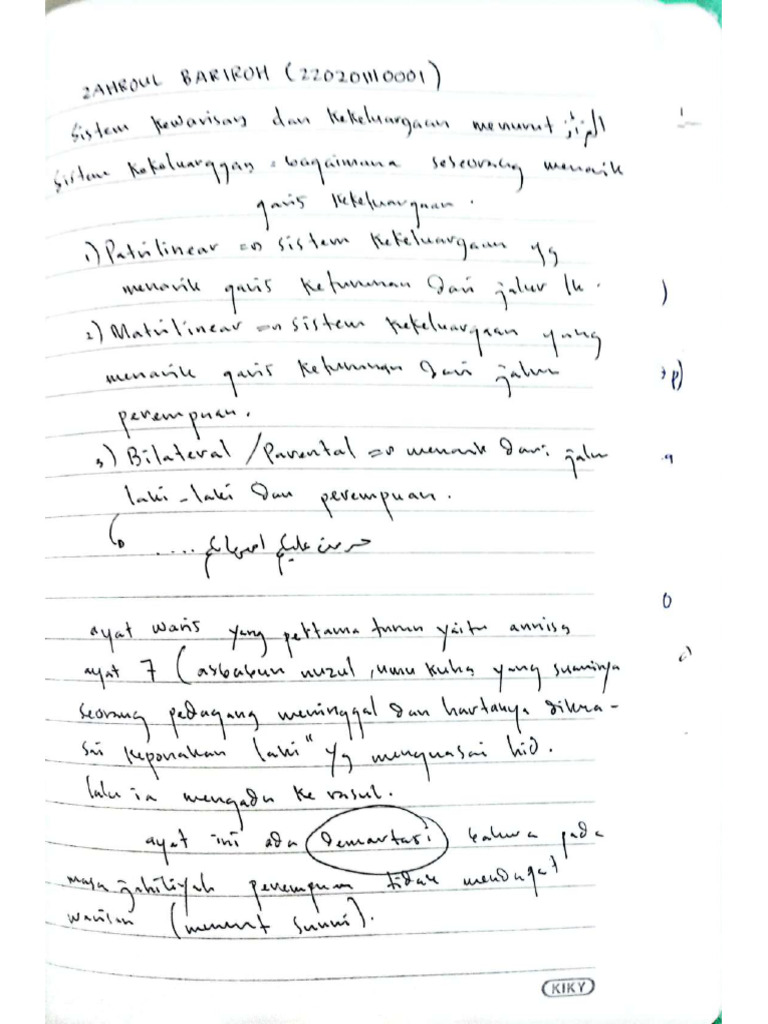 ZAHROUL BARIROH (220201110001)
Sistem kewarisan dan kekeluargaan menurut
Sistem kekeluarggan = bagaimana seseorang menarik
garis kekeluargaan.
1) Patrilinear => sistem kekeluargaan yg
menarik garis keturunan dari jalur lk.
2) Matrilinear => sistem kekeluargaan yang
menarik garis keturunan dari jalur
perempuan.
3) Bilateral / Parental => menarik dari jalur
laki-laki dan perempuan.
حرمت عليكم امهاتكم ....
ayat waris yang pertama turun yaitu annisa
ayat 7 (asbabun nuzul, ummu kuha yang suaminya
seorang pedagang meninggal dan hartanya dikua-
sai keponakan laki" yg menguasai
lalu ia mengadu ke rasul.
ayat ini ada demartasi bahwa pada
masa jahiliyah perempuan tidak mendapat
warisan (menurut sunni).
KIKY